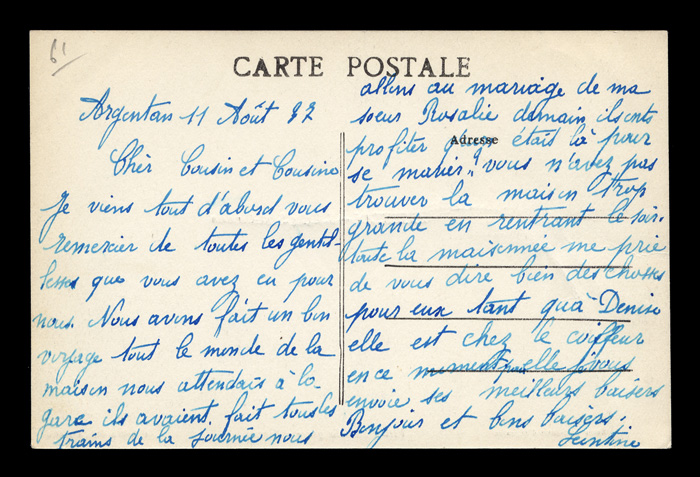 61
CARTE POSTALE
Argentan 11 Août 37
Cher Cousin et Cousine
Je viens tout d'abord vous
remercier de toutes les gentil-
lesses que vous avez eu pour
nous. Nous avons fait un bon
voyage tout le monde de la
maison nous attendais à la
gare ils avaient fait tous les
trains de la journée nous
allons au mariage de ma
soeur Rosalie demain, ils onts
profiter était là pour
Adresse
se marier. vous n'avez pas
trouver la maison trop
grande en rentrant le soir.
toute la maisonnee me prie
de vous dire bien des choses
pour eux tant qu'à Denise
elle est chez le coiffeur
en ce moment elle vous
envoie ses meilleurs baisers
Bonjour et bons baisers.